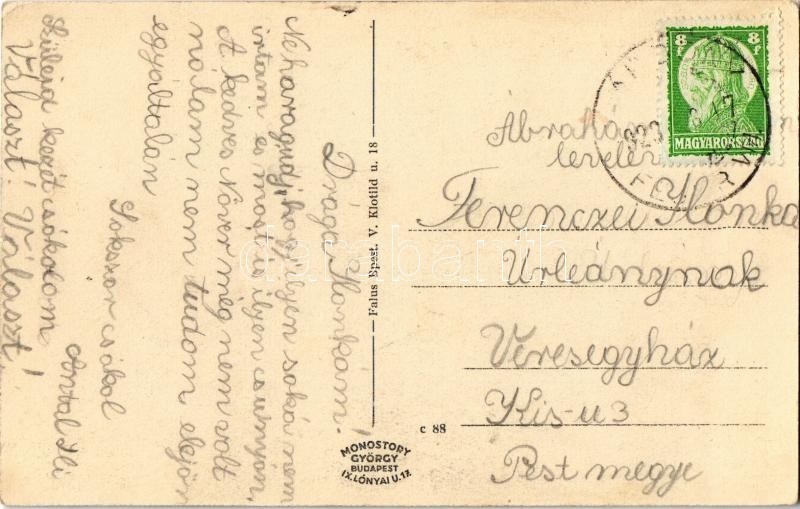 Drága Ilonkám!
Ne haragudj, hogy ilyen soká nem
irtam és most is ilyen csunyán,
A kedves Nővér még nem volt
nálam nem tudom eljön
egyáltalán
Sokszor csókol
Antal Ili
Szüleid kezét csókolom
Választ! Választ!
Falus Bpest. V. Klotild u. 18
c 88
MONOSTORY
GYÖRGY
BUDAPEST
IX. LÓNYAI U. 12
8 f
8 f
MAGYARORSZÁG
Ábrahám
levelén
Ferenczei Ilonka
Urleánynak
Veresegyház
Kis-u 3
Pest megye
darabanth